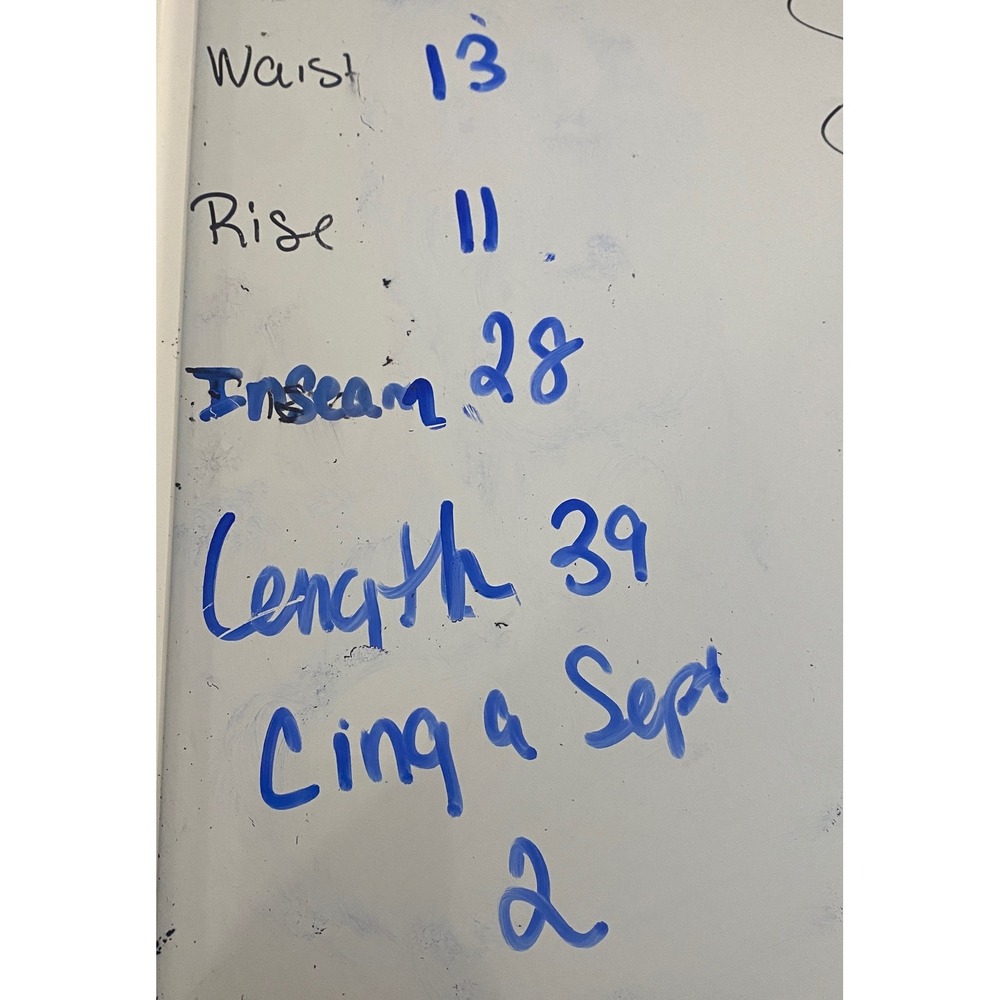 Waist 13
Rise 11
Inseam 28
Length 39
Cinq a Sept
2